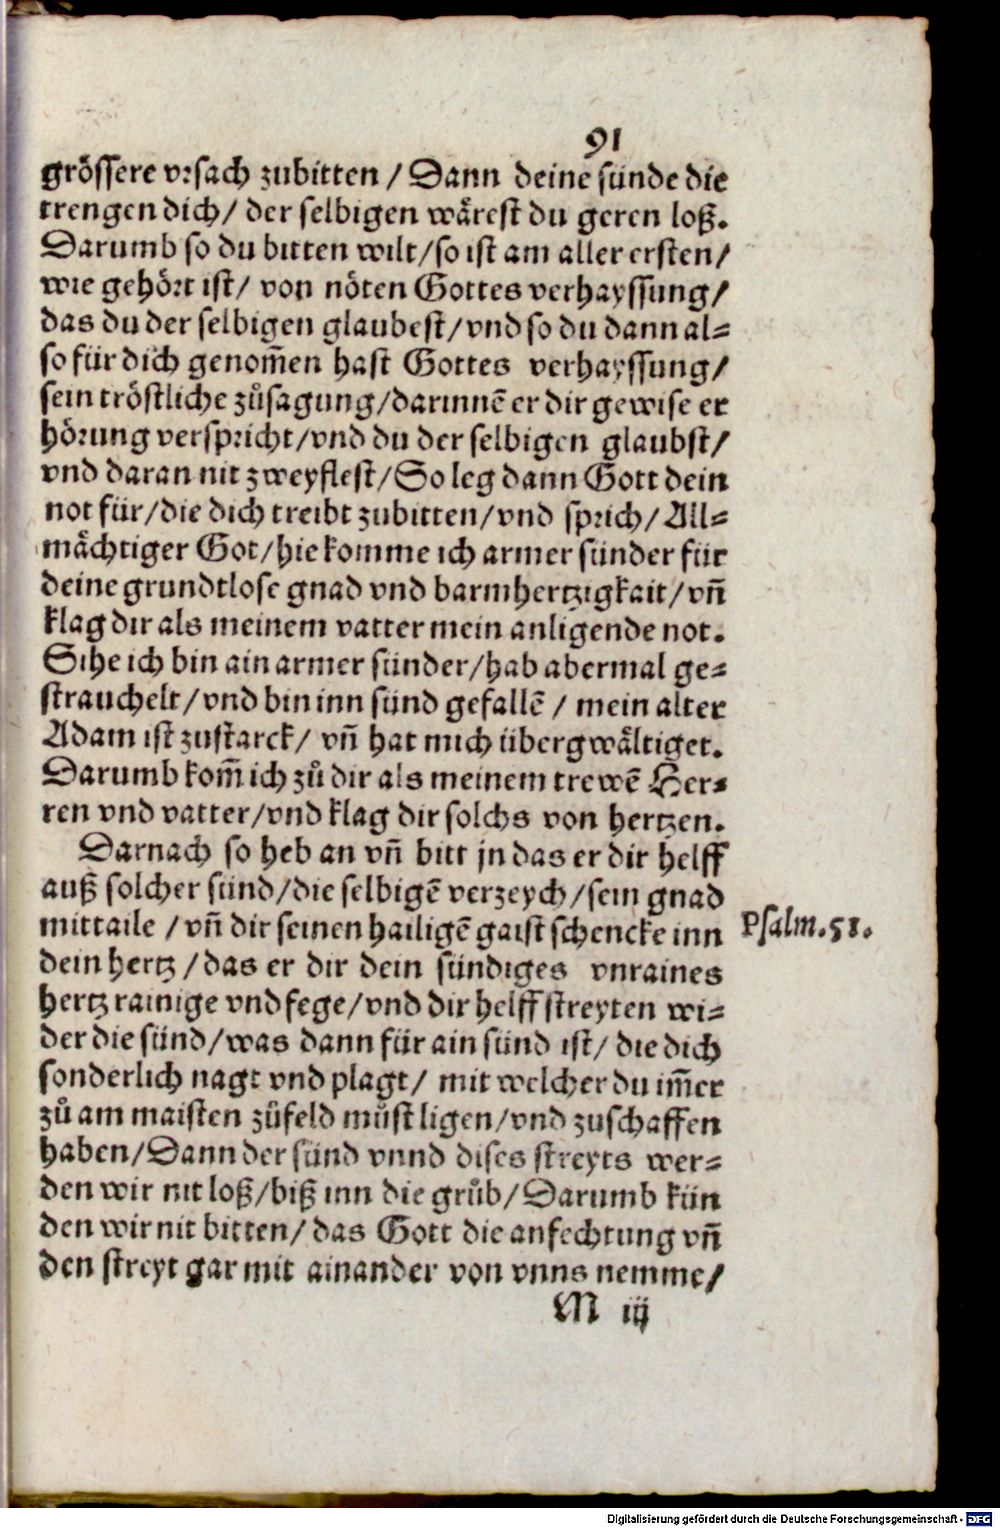 91
grössere vrsach zubitten / Dann deine sünde die
trengen dich / der selbigen wärest du geren loß.
Darumb so du bitten wilt / so ist am aller ersten /
wie gehört ist / von nöten Gottes verhayssung /
das du der selbigen glaubest / vnd so du dann al=
so für dich genom̄en hast Gottes verhayssung /
sein tröstliche zůsagung / darinnē er dir gewise er
hörung verspricht / vnd du der selbigen glaubst /
vnd daran nit zweyflest / So leg dann Gott dein
not für / die dich treibt zubitten / vnd sprich / All=
mächtiger Got / hie komme ich armer sünder für
deine grundtlose gnad vnd barmhertzigkait / vn̄
klag dir als meinem vatter mein anligende not.
Sihe ich bin ain armer sünder / hab abermal ge=
strauchelt / vnd bin inn sünd gefallē / mein alter
Adam ist zustarck / vn̄ hat mich übergwältiget.
Darumb kom̄ ich zů dir als meinem trewē Her=
ren vnd vatter / vnd klag dir solchs von hertzen.
Darnach so heb an vn̄ bitt jn das er dir helff
auß solcher sünd / die selbigē verzeych / sein gnad
mittaile / vn̄ dir seinen hailigē gaist schencke inn
Psalm. 51.
dein hertz / das er dir dein sündiges vnraines
hertz rainige vnd fege / vnd dir helff streyten wi=
der die sünd / was dann für ain sünd ist / die dich
sonderlich nagt vnd plagt / mit welcher du im̄er
zů am maisten zůfeld můst ligen / vnd zuschaffen
haben / Dann der sünd vnnd dises streyts wer=
den wir nit loß / biß inn die grůb / Darumb kün
den wir nit bitten / das Gott die anfechtung vn̄
den streyt gar mit ainander von vnns nemme /
M iij
Digitalisierung gefördert durch die Deutsche Forschungsgemeinschaft - DFG